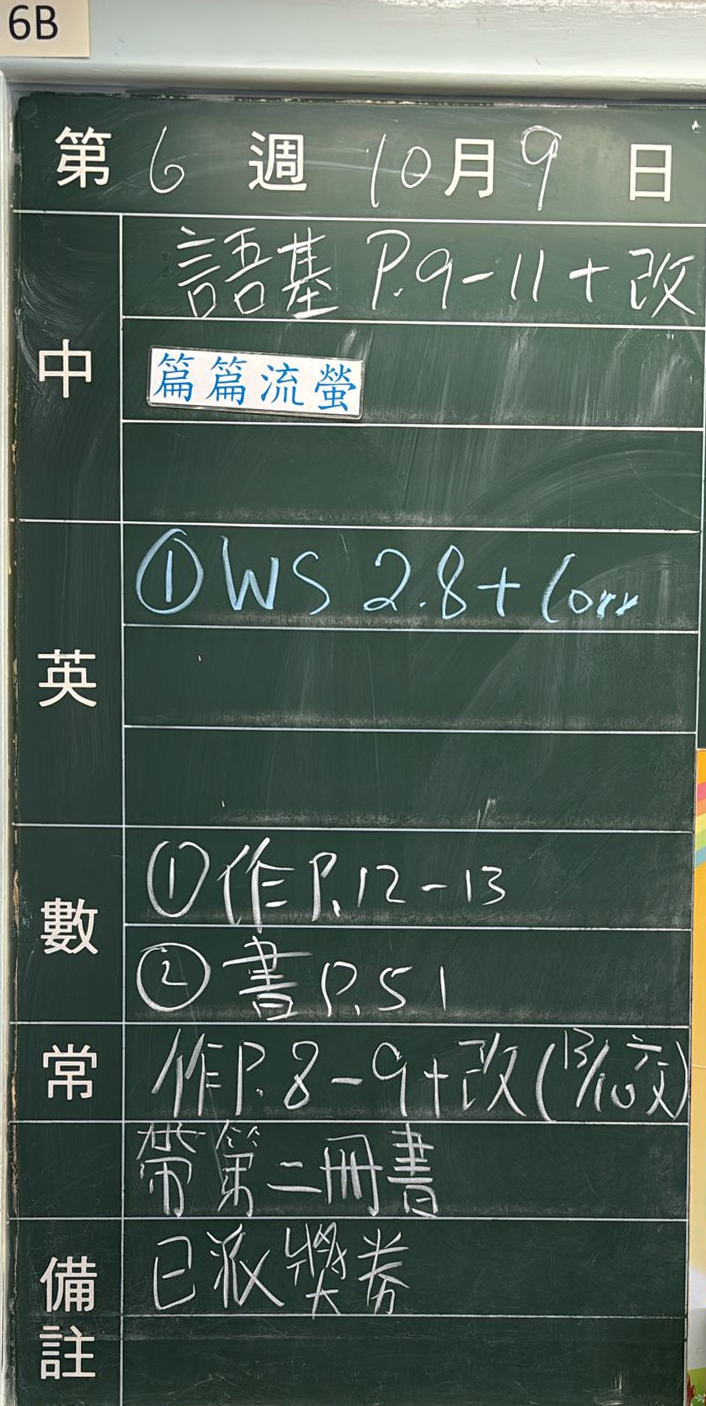 6B
第 6 週 10 月 9 日
中
語基 P.9-11+改
篇篇流螢
英
① WS 2.8+Corr
數
① 作P.12-13
② 書P.51
常
作P.8-9+改(13/10交)
帶第二冊書
備註
已派獎券